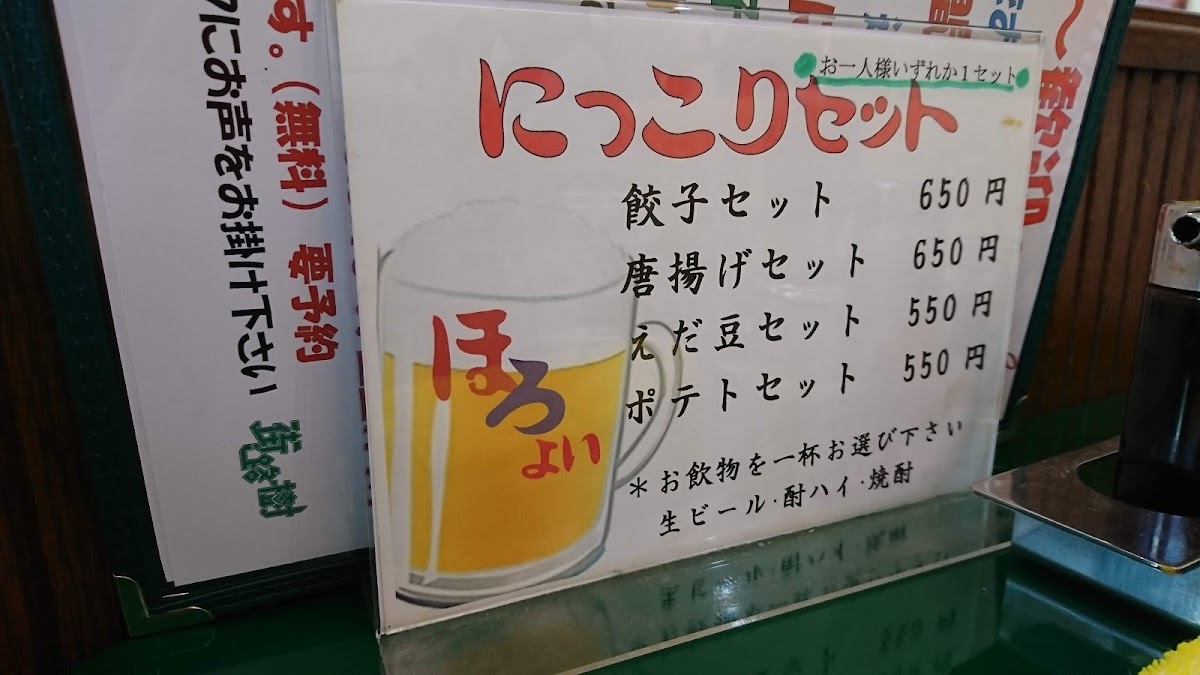 お一人様いずれか1セット
にっこりセット
餃子セット 650円
唐揚げセット 650円
えだ豆セット 550円
ポテトセット 550円
＊お飲物を一杯お選び下さい
生ビール・酎ハイ・焼酎
ほろよい
す。（無料）要予約
にお声をお掛け下さい